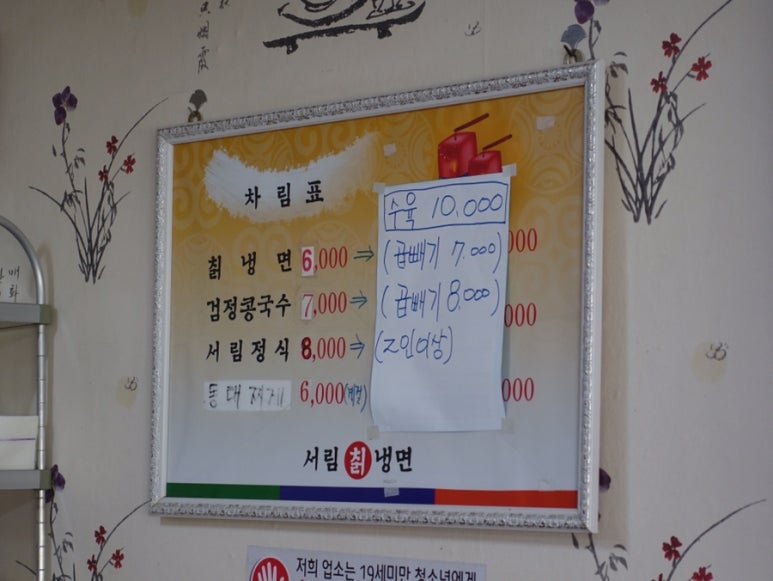 차림표
수육 10,000
칡냉면 6,000 ⇒ (곱빼기 7.000) 000
검정콩국수 7,000 ⇒ (곱빼기 8.000) 000
서림정식 8,000 ⇒ (2인이상)
동태찌개 6,000(계절) 000
서림 칡 냉면
저희 업소는 19세미만 청소년에게